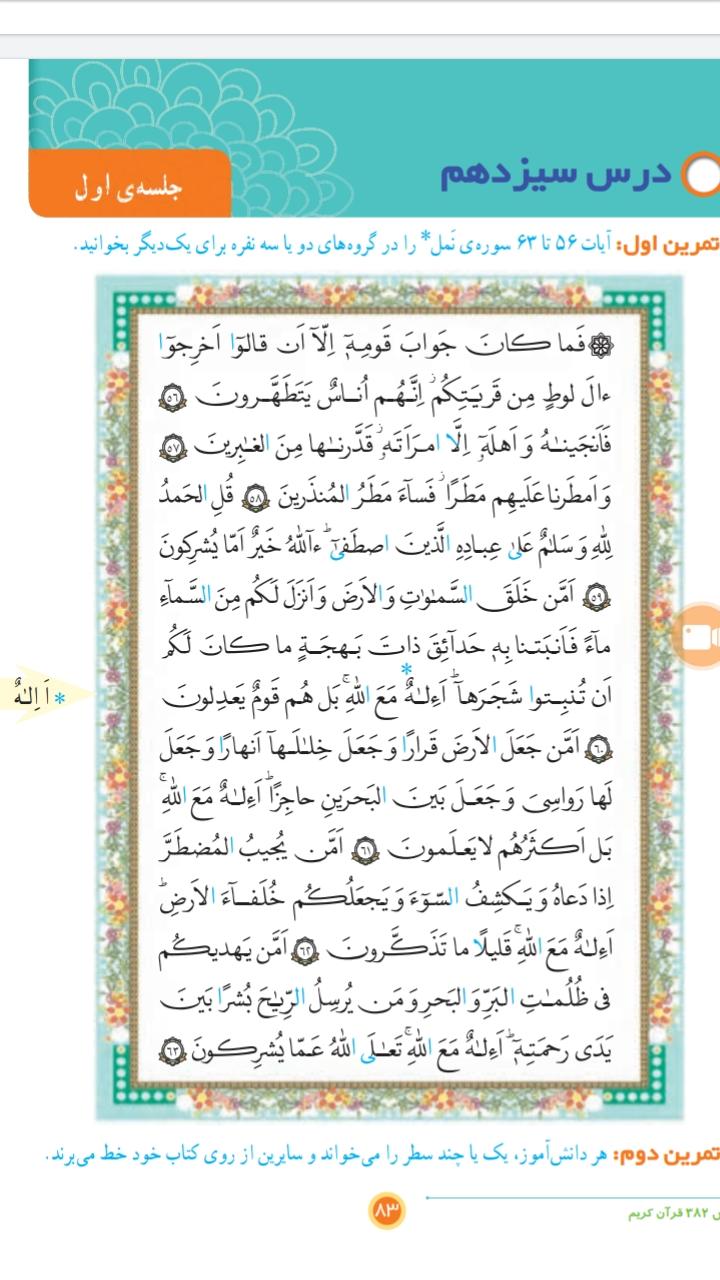 درس سیزدهم
جلسه‌ی اول
تمرین اول: آیات ۵۶ تا ۶۳ سوره‌ی نَمل* را در گروه‌های دو یا سه نفره برای یک‌دیگر بخوانید.
۞ فَما كانَ جَوابَ قَومِهٖٓ اِلّآ اَن قالوٓا اَخرِجوٓا
ءالَ لوطٍ مِن قَريَتِكُم ۖ اِنَّهُم اُناسٌ يَتَطَهَّرونَ ﴿٥٦﴾
فَاَنجَينٰهُ وَ اَهلَهٗٓ اِلَّا امرَاَتَهٗ ۖ قَدَّرنٰها مِنَ الغٰبِرينَ ﴿٥٧﴾
وَ اَمطَرنا عَلَيهِم مَطَرًا ۖ فَسآءَ مَطَرُ المُنذَرينَ ﴿٥٨﴾ قُلِ الحَمدُ
لِلّٰهِ وَ سَلامٌ عَلىٰ عِبادِهِ الَّذينَ اصطَفىٰٓ ۗ ءآللهُ خَيرٌ اَمّا يُشرِكونَ
﴿٥٩﴾ اَمَّن خَلَقَ السَّمٰوٰتِ وَ الاَرضَ وَ اَنزَلَ لَكُم مِنَ السَّمآءِ
مآءً فَاَنبَتنا بِهٖ حَدآئِقَ ذاتَ بَهجَةٍ ما كانَ لَكُم
اَن تُنبِتوا شَجَرَهآ ۗ اَءِلٰهٌ* مَعَ اللهِ ۚ بَل هُم قَومٌ يَعدِلونَ
* اَ اِلٰهٌ
﴿٦٠﴾ اَمَّن جَعَلَ الاَرضَ قَرارًا وَ جَعَلَ خِلٰلَهآ اَنهارًا وَ جَعَلَ
لَها رَواسِىَ وَ جَعَلَ بَينَ البَحرَينِ حاجِزًا ۗ اَءِلٰهٌ مَعَ اللهِ ۚ
بَل اَكثَرُهُم لا يَعلَمونَ ﴿٦١﴾ اَمَّن يُجيبُ المُضطَرَّ
اِذا دَعاهُ وَ يَكشِفُ السّوٓءَ وَ يَجعَلُكُم خُلَفآءَ الاَرضِ ۗ
اَءِلٰهٌ مَعَ اللهِ ۚ قَليلًا ما تَذَكَّرونَ ﴿٦٢﴾ اَمَّن يَهديكُم
فى ظُلُمٰتِ البَرِّ وَ البَحرِ وَ مَن يُرسِلُ الرِّيٰحَ بُشرًا بَينَ
يَدَى رَحمَتِهٖٓ ۗ اَءِلٰهٌ مَعَ اللهِ ۚ تَعٰلَى اللهُ عَمّا يُشرِكونَ ﴿٦٣﴾
تمرین دوم: هر دانش‌آموز، یک یا چند سطر را می‌خواند و سایرین از روی کتاب خود خط می‌برند.
۳۸۲ قرآن کریم
۸۳